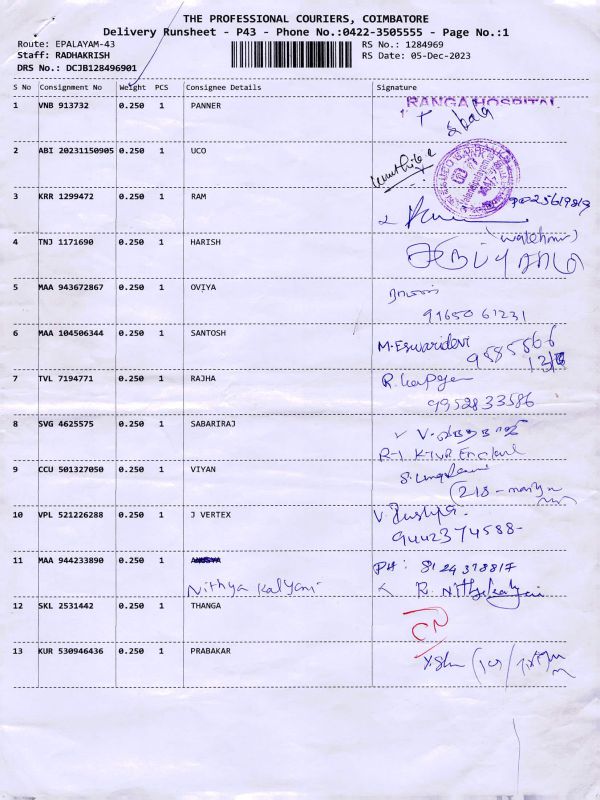 THE PROFESSIONAL COURIERS, COIMBATORE
Delivery Runsheet - P43 - Phone No.:0422-3505555 - Page No.:1
Route: EPALAYAM-43 RS No.: 1284969
Staff: RADHAKRISH RS Date: 05-Dec-2023
DRS No.: DCJB128496901
S No Consignment No Weight PCS Consignee Details Signature
1 VNB 913732 0.250 1 PANNER RANGA HOSPITAL
2 ABI 20231150905 0.250 1 UCO
3 KRR 1299472 0.250 1 RAM
4 TNJ 1171690 0.250 1 HARISH
5 MAA 943672867 0.250 1 OVIYA
9165061231
6 MAA 104506344 0.250 1 SANTOSH M. Eswaridevi
7 TVL 7194771 0.250 1 RAJHA
9952833586
8 SVG 4625575 0.250 1 SABARIRAJ
9 CCU 501327050 0.250 1 VIYAN
10 VPL 521226288 0.250 1 J VERTEX
9442374588
11 MAA 944233890 0.250 1 PH: 8124378817
Nithya Kalyani R. Nithyakalyani
12 SKL 2531442 0.250 1 THANGA CN
13 KUR 530946436 0.250 1 PRABAKAR